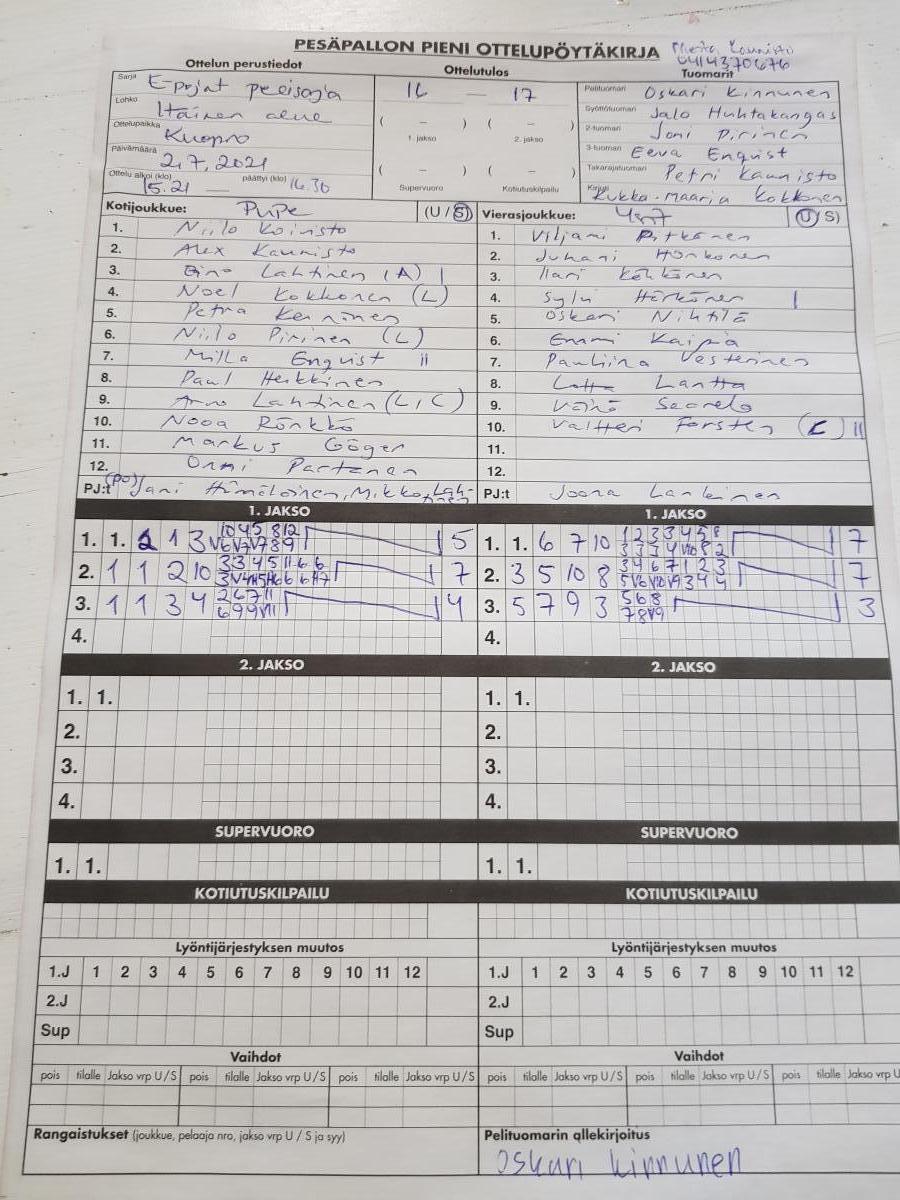 PESÄPALLON PIENI OTTELUPÖYTÄKIRJA
0414370676
Ottelun perustiedot Ottelutulos Tuomarit
Sarja E-pojat
Lohko Itäinen alue
Ottelupaikka Kuopio
Päivämäärä 2.7.2021
Ottelu alkoi (klo) 15.21 — päättyi (klo) 16.30
16 — 17
( – ) ( – )
1. jakso 2. jakso
( – ) ( – )
Supervuoro Kotiutuskilpailu
Pelituomari Oskari Kinnunen
Syöttötuomari Jalo Huhtakangas
2-tuomari Joni Pirinen
3-tuomari Eeva Enqvist
Takarajatuomari Petri Kaunisto
Kirjuri Kukka-maaria Kokkonen
Kotijoukkue: PuPe (U / S)
1. Niilo Koivisto
2. Alex Kaunisto
3. Eino Lahtinen (A) |
4. Noel Kokkonen (L)
5. Petra Keinänen
6. Niilo Pirinen (L)
7. Milla Enqvist ||
8. Paul Heikkinen
9. Arno Lahtinen (L, C)
10. Nooa Rönkkö
11. Markus Göger
12. Onni Partanen
PJ:t (PO) Jani Hämäläinen, Mikko Lahtinen
Vierasjoukkue: (U / S)
1. Viljami Pitkänen
2. Juhani Honkonen
3. Ilari
4. Härkönen |
5. Oskari Nihtilä
6. Emmi Kaipia
7. Pauliina Vesterinen
8. Lotta Lantta
9. Väinö Saarelo
10. Valtteri Forsten (C) ||
11.
12.
PJ:t Joona Lankinen
1. JAKSO 1. JAKSO
1. 1. 2 1 3 5
2. 1 1 2 10 7
3. 1 1 3 4 4
4.
1. 1. 6 7 10 7
2. 3 5 10 8 7
3. 5 7 9 3 3
4.
2. JAKSO 2. JAKSO
1. 1. 1. 1.
2. 2.
3. 3.
4. 4.
SUPERVUORO SUPERVUORO
1. 1. 1. 1.
KOTIUTUSKILPAILU KOTIUTUSKILPAILU
Lyöntijärjestyksen muutos Lyöntijärjestyksen muutos
1.J 1 2 3 4 5 6 7 8 9 10 11 12 1.J 1 2 3 4 5 6 7 8 9 10 11 12
2.J 2.J
Sup Sup
Vaihdot Vaihdot
pois tilalle Jakso vrp U / S pois tilalle Jakso vrp U / S pois tilalle Jakso vrp U / S pois tilalle Jakso vrp U / S pois tilalle Jakso vrp U / S pois tilalle Jakso vrp U
Rangaistukset (joukkue, pelaaja nro, jakso vrp U / S ja syy) Pelituomarin allekirjoitus
Oskari kinnunen